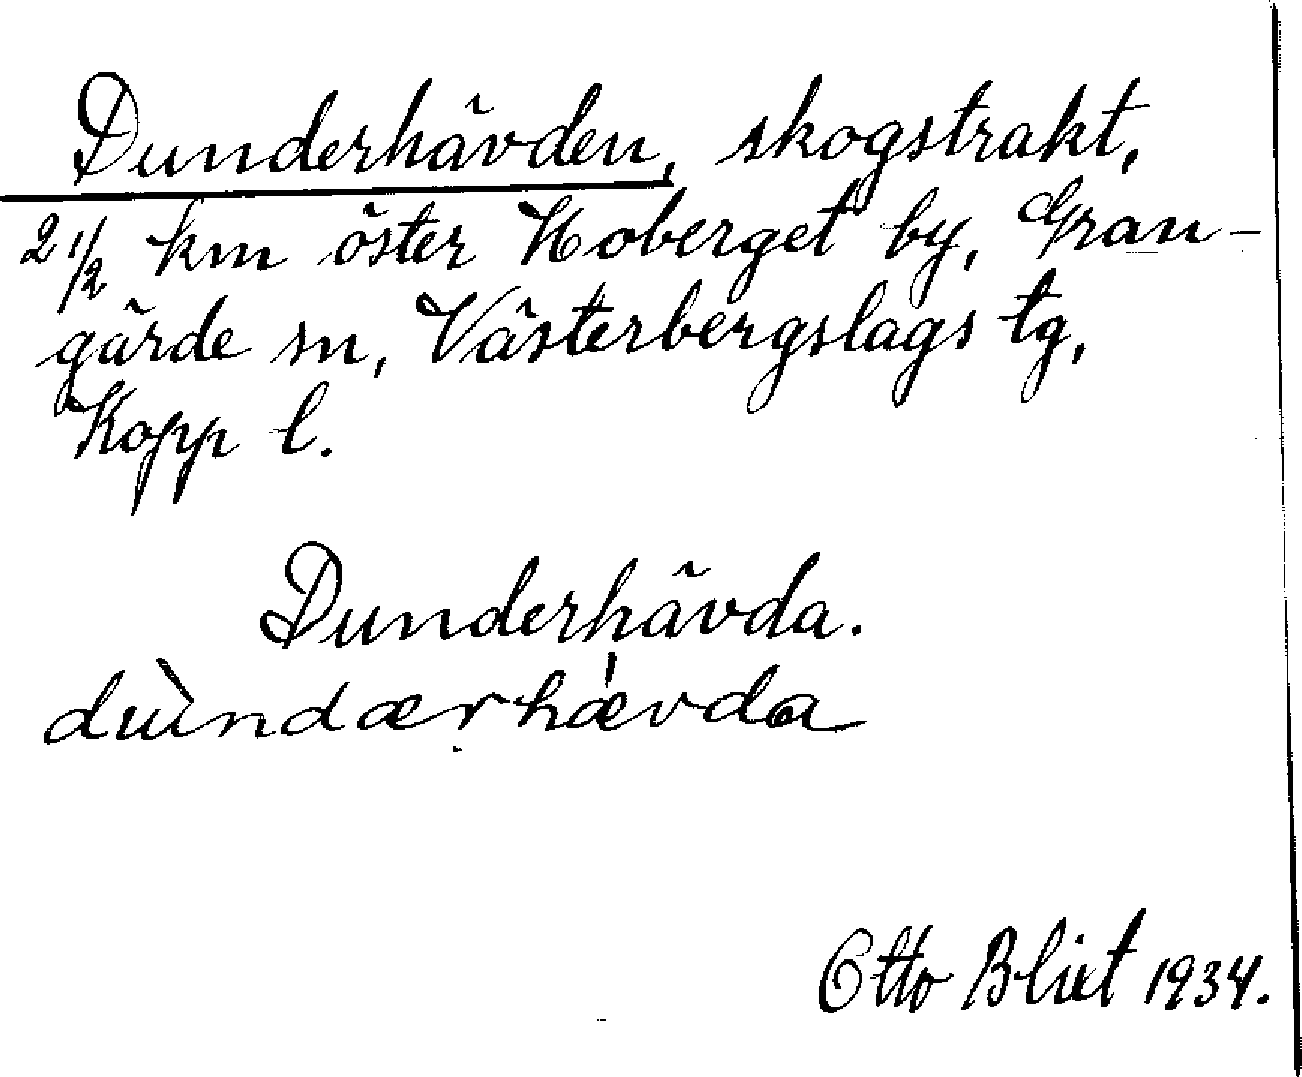 Dunderhävden, skogstrakt,
2 1/2 km öster Hoberget by, Gran-
gärde sn, Västerbergslags tg,
Kopp l.
Dunderhävda.
dùndærhævda
Otto Blixt 1934.